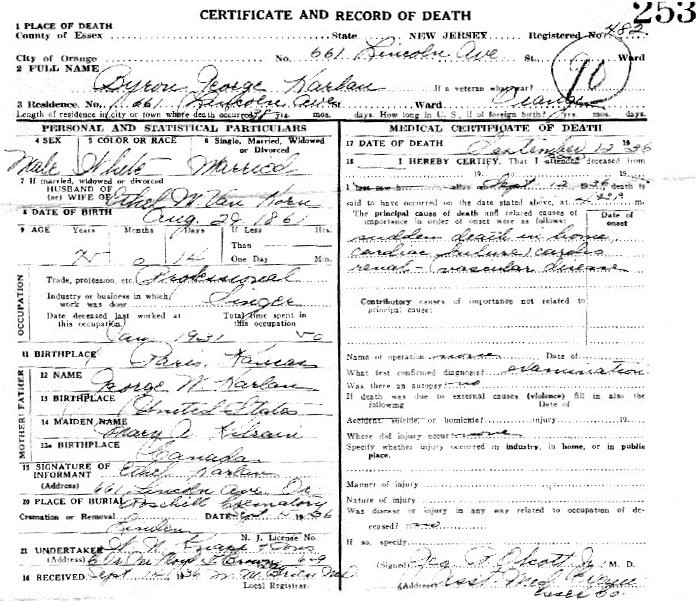 253
CERTIFICATE AND RECORD OF DEATH
1 PLACE OF DEATH
County of Essex State NEW JERSEY Registered No. 482
City of Orange No. 661 Lincoln Ave St. Ward
90
2 FULL NAME Byron George Harlan If a veteran what war?
3 Residence. No. 661 Lincoln Ave St Ward Orange
Length of residence in city or town where death occurred yrs. mos. days. How long in U. S., if of foreign birth? yrs. mos. days.
PERSONAL AND STATISTICAL PARTICULARS
4 SEX 5 COLOR OR RACE 6 Single, Married, Widowed or Divorced
Male White Married
7 If married, widowed or divorced
HUSBAND OF
(or) WIFE OF Ethel M Van Horn
8 DATE OF BIRTH Aug. 29 1861
9 AGE Years Months Days If Less Than One Day Hrs. Min.
75 0 14
OCCUPATION
Trade, profession, etc. Professional
Industry or business in which work was done Singer
Date deceased last worked at this occupation Total time spent in this occupation
Jan 1931 50
11 BIRTHPLACE Paris, Kansas
FATHER
12 NAME George N Harlan
13 BIRTHPLACE United States
MOTHER
14 MAIDEN NAME Mary A
13a BIRTHPLACE Canada
15 SIGNATURE OF INFORMANT Ethel Harlan
(Address) 661 Lincoln Ave Or
20 PLACE OF BURIAL Rosehill Crematory
Cremation or Removal DATE Sept 1936
Linden
N. J. License No.
21 UNDERTAKER
(Address)
16 RECEIVED Sept 1936
Local Registrar.
MEDICAL CERTIFICATE OF DEATH
17 DATE OF DEATH September 12 1936
18 I HEREBY CERTIFY, That I attended deceased from
19 19
I last saw h alive Sept 12 1936, death is
said to have occurred on the date stated above, at m.
The principal cause of death and related causes of importance in order of onset were as follows:
Date of onset
sudden death in home
cardiac failure, cardio
renal-(vascular disease
Contributory causes of importance not related to principal cause:
Name of operation none Date of
What test confirmed diagnosis? examination
Was there an autopsy? no
If death was due to external causes (violence) fill in also the following Date of
Accident, suicide, or homicide? injury 19
Where did injury occur none
Specify whether injury occurred in industry, in home, or in public place.
Manner of injury
Nature of injury
Was disease or injury in any way related to occupation of deceased? no
If so, specify
(Signed) M. D.
(Address) Asst Med
Essex Co